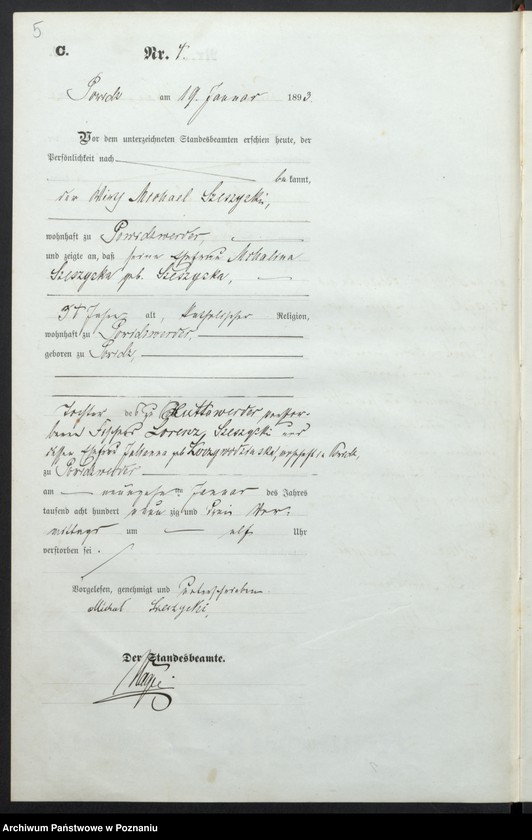 5
C.
Nr. 4.
Powidz am 19. Januar 1893.
Vor dem unterzeichneten Standesbeamten erschien heute, der
Persönlichkeit nach
be kannt,
der Wirth Michael Szeszycki,
wohnhaft zu Powidzwerder,
und zeigte an, daß seine Ehefrau Michalina
Szeszycka geb. Szeszycka,
Jahre alt, katholischer Religion,
wohnhaft zu Powidzwerder,
geboren zu Powidz,
Tochter des zu verstor-
benen Fischers Lorenz Szeszycki und
dessen Ehefrau geb. Powidz,
zu Powidzwerder
am neunzehnten Januar des Jahres
tausend acht hundert neun zig und drei Vor-
mittags um elf Uhr
verstorben sei.
Vorgelesen, genehmigt und unterschrieben
Michal Szeszycki,
Der Standesbeamte.
Archiwum Państwowe w Poznaniu